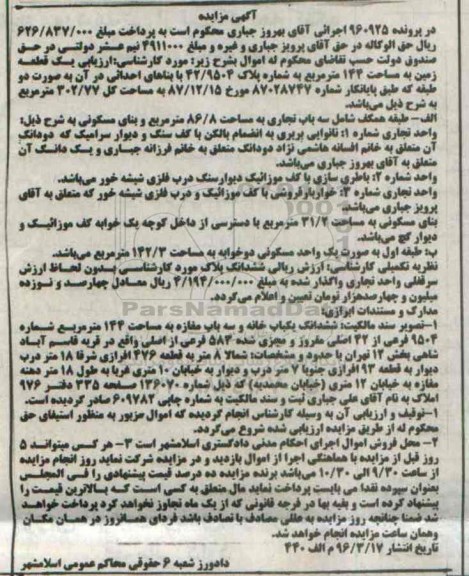 آگهی مزایده
در پرونده 960925 اجرائی آقای بهروز جباری محکوم است به پرداخت مبلغ 626/837/000
ریال حق الوکاله در حق آقای پرویز جباری و غیره و مبلغ 4911000 نیم عشر دولتی در حق
صندوق دولت حسب تقاضای محکوم له اموال بشرح زیر: مورد کارشناسی: ارزیابی یک قطعه
زمین به مساحت 144 مترمربع به شماره پلاک 42/9504 با بناهای احداثی در آن به صورت دو
طبقه که طبق پایانکار شماره 87028747 مورخ 87/12/15 به مساحت کل 302/77 مترمربع
به شرح ذیل می‌باشد.
الف- طبقه همکف شامل سه باب تجاری به مساحت 86/8 مترمربع و بنای مسکونی به شرح ذیل:
واحد تجاری شماره 1: نانوایی بربری به انضمام بالکن با کف سنگ و دیوار سرامیک که دودانگ
آن متعلق به خانم افسانه هاشمی نژاد دودانگ متعلق به خانم فرزانه جباری و یک دانگ آن
متعلق به آقای بهروز جباری می‌باشد.
واحد شماره 2: باطری سازی با کف موزائیک دیوارسنگ درب فلزی شیشه خور می‌باشد.
واحد تجاری شماره 3: خواربارفروشی با کف موزائیک و درب فلزی شیشه خور که متعلق به آقای
پرویز جباری می‌باشد.
بنای مسکونی به مساحت 31/2 مترمربع با دسترسی از داخل کوچه یک خوابه کف موزائیک و
دیوار گچ می‌باشد.
ب: طبقه اول به صورت یک واحد مسکونی دوخوابه به مساحت 142/3 مترمربع می‌باشد.
نظریه تکمیلی کارشناسی: ارزش ریالی ششدانگ پلاک مورد کارشناسی بدون لحاظ ارزش
سرقفلی واحد تجاری واگذار شده به مبلغ 4/194/000/000 ریال معادل چهارصد و نوزده
میلیون و چهارصدهزار تومان تعیین و اعلام می‌گردد.
مدارک و مستندات ابرازی:
1-تصویر سند مالکیت: ششدانگ یکباب خانه و سه باب مغازه به مساحت 144 مترمربع شماره
9504 فرعی از 42 اصلی مفروز و مجزی شده 583 فرعی از اصلی واقع در قریه قاسم آباد
شاهی بخش 12 تهران با حدود و مشخصات: شمالا 8 متر به قطعه 476 افرازی شرقا 18 متر درب
دیوار به قطعه 93 افرازی جنوبا 7 متر درب و دیوار به خیابان 10 متری غربا به طول 18 متر دهنه
مغازه به خیابان 12 متری (خیابان محمدیه) که ذیل شماره 136070 صفحه 335 دفتر 976
املاک به نام آقای علی جباری ثبت و سند مالکیت به شماره چاپی 609782 صادر گردیده است.
1-توقیف و ارزیابی آن به وسیله کارشناس انجام گردیده که اموال مزبور به منظور استیفای حق
محکوم له از طریق مزایده ارزیابی شده شروع می‌گردد.
2- محل فروش اموال اجرای احکام مدنی دادگستری اسلامشهر است 3- هر کسی میتواند 5
روز قبل از مزایده با هماهنگی اجرا از اموال بازدید و در مزایده شرکت نماید روز انجام مزایده
از ساعت 9/30 الی 10/30 می‌باشد برنده مزایده ده درصد قیمت پیشنهادی را فی المجلس
بعنوان سپرده نقدا می بایست پرداخت نماید مال متعلق به کسی است که بالاترین قیمت را
پیشنهاد کرده است و بقیه بها در فرجه قانونی که از یک ماه تجاوز نخواهد کرد پرداخت خواهد
شد ضمنا چنانچه روز مزایده به عللی مصادف با تصادف باشد فردای همانروز در همان مکان
وهمان ساعت مزایده انجام خواهد شد.
تاریخ انتشار 96/3/17 م الف 440
دادورز شعبه 6 حقوقی محاکم عمومی اسلامشهر